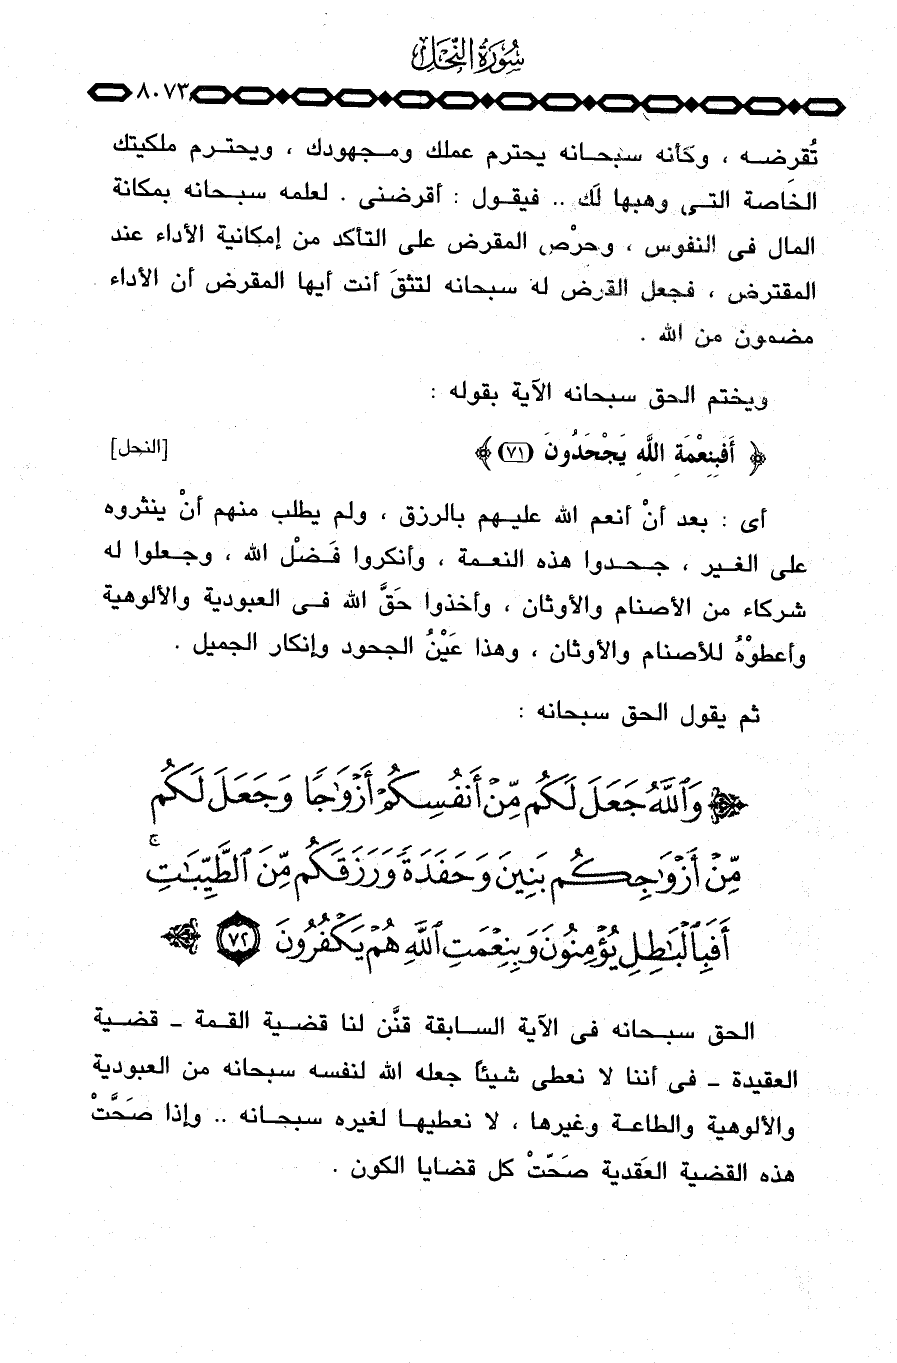 سُورَةُ النَّحْلِ
٨٠٧٣
تُقرضه ، وكأنه سبحانه يحترم عملك ومجهودك ، ويحترم ملكيتك
الخاصة التى وهبها لَك .. فيقول : أقرضنى . لعلمه سبحانه بمكانة
المال فى النفوس ، وحرْص المقرض على التأكد من إمكانية الأداء عند
المقترض ، فجعل القرض له سبحانه لتثقَ أنت أيها المقرض أن الأداء
مضمون من الله .
ويختم الحق سبحانه الآية بقوله :
﴿ أَفَبِنِعْمَةِ اللَّهِ يَجْحَدُونَ (٧١) ﴾ [النحل]
أى : بعد أنْ أنعم الله عليهم بالرزق ، ولم يطلب منهم أنْ ينثروه
على الغير ، جحدوا هذه النعمة ، وأنكروا فَضلْ الله ، وجعلوا له
شركاء من الأصنام والأوثان ، وأخذوا حَقَّ الله فى العبودية والألوهية
وأعطوْهُ للأصنام والأوثان ، وهذا عَيْنُ الجحود وإنكار الجميل .
ثم يقول الحق سبحانه :
﴿ وَٱللَّهُ جَعَلَ لَكُم مِّنْ أَنفُسِكُمْ أَزْوَٰجًا وَجَعَلَ لَكُم
مِّنْ أَزْوَٰجِكُم بَنِينَ وَحَفَدَةً وَرَزَقَكُم مِّنَ ٱلطَّيِّبَٰتِ ۚ
أَفَبِٱلْبَٰطِلِ يُؤْمِنُونَ وَبِنِعْمَتِ ٱللَّهِ هُمْ يَكْفُرُونَ ٧٢ ﴾
الحق سبحانه فى الآية السابقة قنَّن لنا قضية القمة ـ قضية
العقيدة ـ فى أننا لا نعطى شيئاً جعله الله لنفسه سبحانه من العبودية
والألوهية والطاعة وغيرها ، لا نعطيها لغيره سبحانه .. وإذا صَحَّتْ
هذه القضية العَقدية صَحَّتْ كل قضايا الكون .